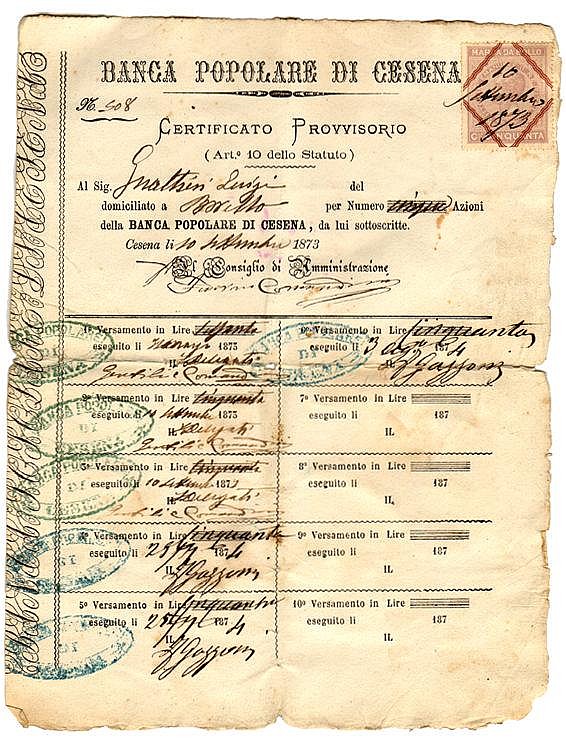 BANCA POPOLARE DI CESENA
MARCA DA BOLLO
10
Settembre
1873
C. CINQUANTA
CERTIFICATO PROVVISORIO
(Art.º 10 dello Statuto)
Al Sig. Gualtieri Luigi del
domiciliato a Boretto per Numero cinque Azioni
della BANCA POPOLARE DI CESENA, da lui sottoscritte.
Cesena li 10 settembre 1873
Il Consiglio di Amministrazione
1º Versamento in Lire
eseguito li 1873
IL Delegati
6º Versamento in Lire cinquanta
eseguito li 3 187 4
IL Gazzoni
2º Versamento in Lire cinquanta
eseguito li 10 settembre 1873
IL Delegati
7º Versamento in Lire
eseguito li 187
IL
3º Versamento in Lire cinquanta
eseguito li 10 settembre 1873
IL Delegati
8º Versamento in Lire
eseguito li 187
IL
4º Versamento in Lire cinquanta
eseguito li 187 4
IL Gazzoni
9º Versamento in Lire
eseguito li 187
IL
5º Versamento in Lire cinquanta
eseguito li 187 4
IL Gazzoni
10º Versamento in Lire
eseguito li 187
IL
BANCA POPOLARE DI CESENA